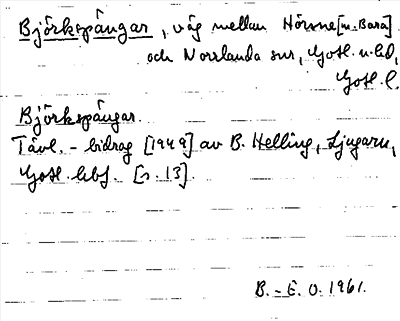 Björkspångar, väg mellan Hörsne [m. Bara]
och Norrlanda snr, Gotl. n. hd,
Gotl. l.
Björkspångar.
Tävl.-bidrag [1949] av B. Helling, Ljugarn,
Gotl. hbf. [s. 13].
B.-E. O. 1961.